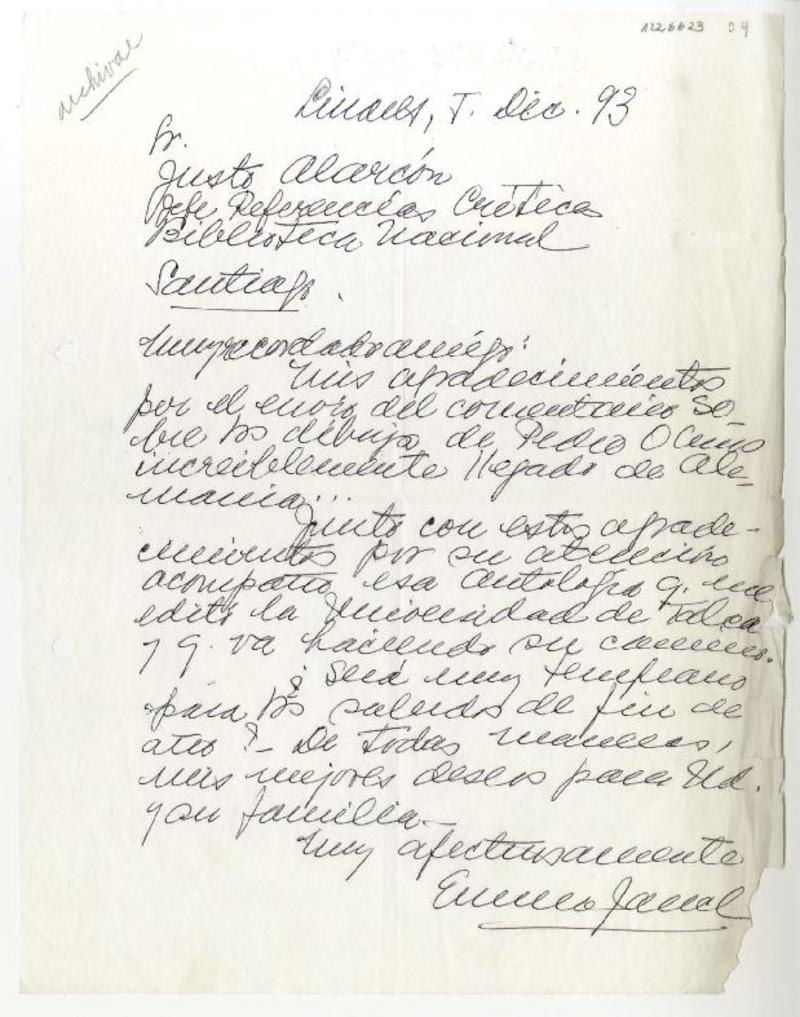 1226623 04
archivar
Linares, 7. Dic. 93
Sr.
Justo Alarcón
Jefe Referencias Críticas
Biblioteca Nacional
Santiago.
Muy recordado amigo:
Mis agradecimientos
por el envío del comentario so-
bre los dibujos de Pedro Olmos
increíblemente llegado de Ale-
mania...
Junto con estos agrade-
cimientos por su atención
acompaño esa antología q. me
editó la Universidad de Talca
y q. va haciendo su camino.
¿Será muy temprano
para los saludos de fin de
año?- De todas maneras,
mis mejores deseos para Ud.
y su familia.-
Muy afectuosamente
Emma Jauch